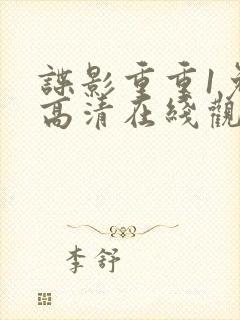 諜影重重1免
高清在綫觀
李舒